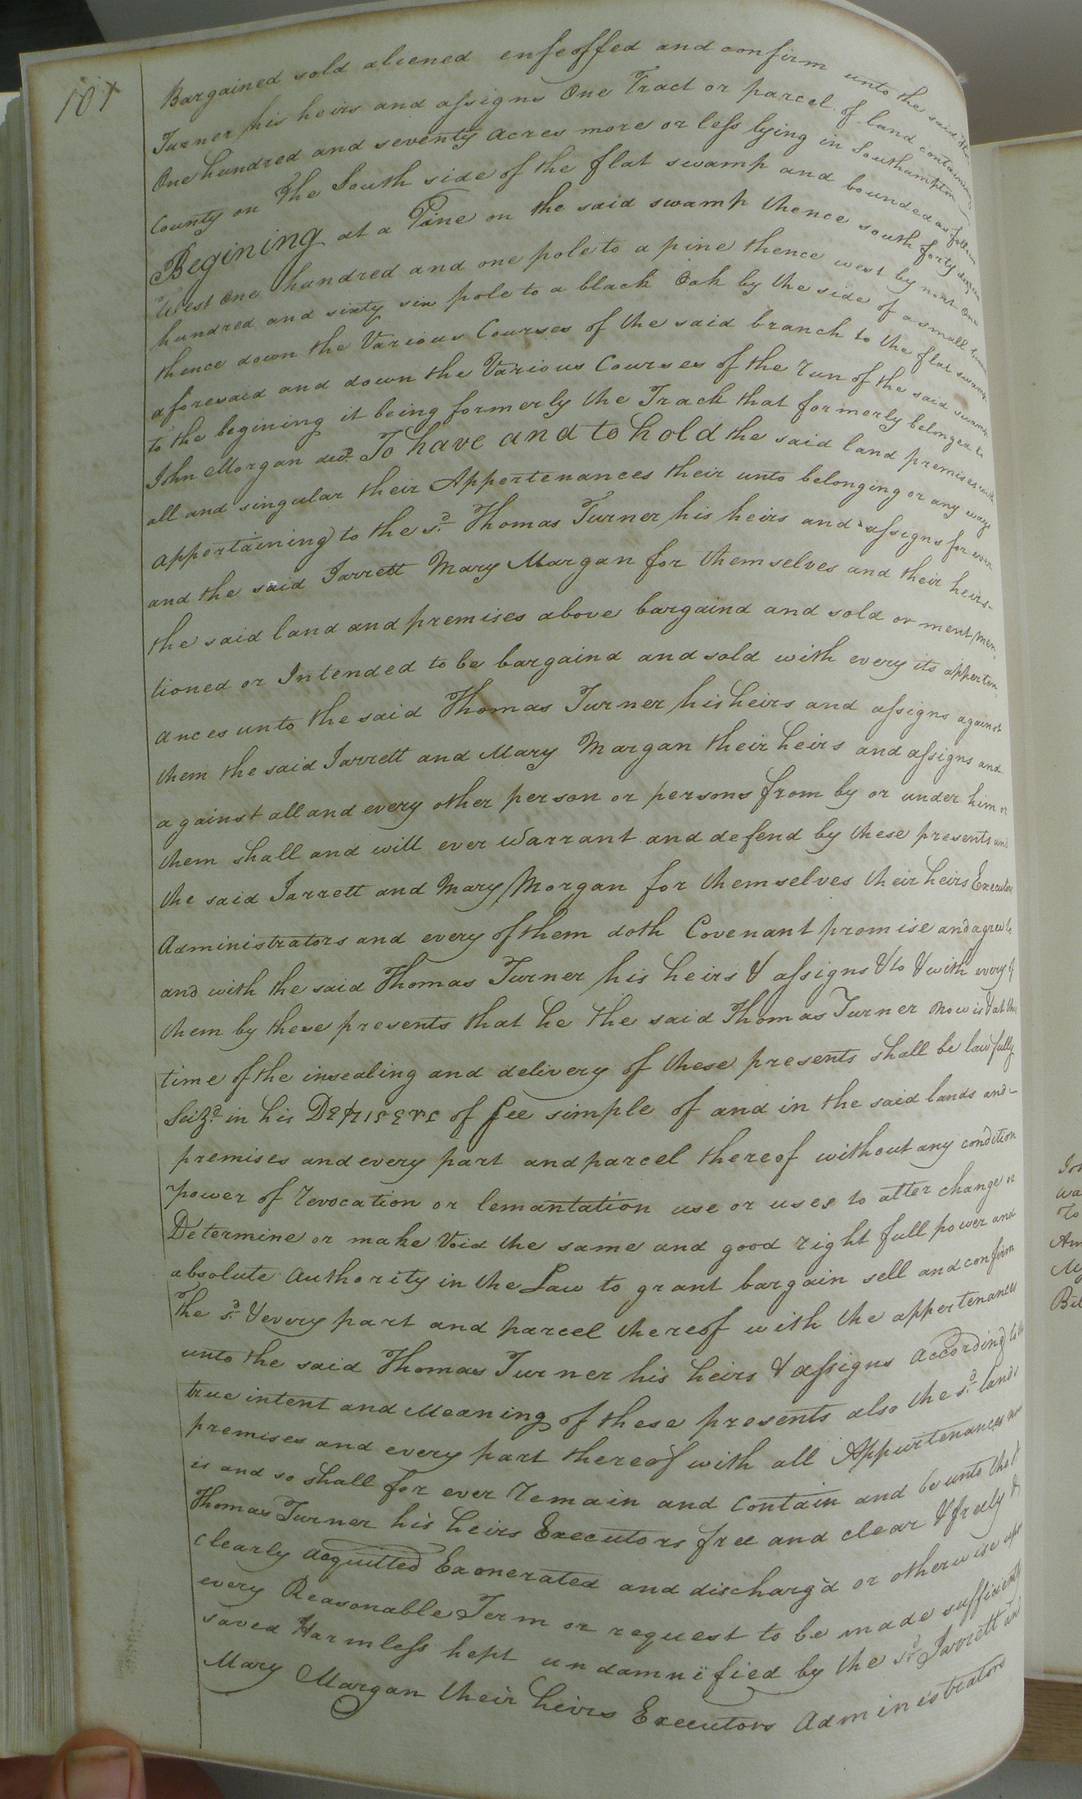 101
Bargained sold aliened enfeoffed and confirm unto the said Tho
Turner his heirs and assigns One Tract or parcel of land containing
One hundred and seventy acres more or less lying in Southampton
County on the South side of the flat swamp and bounded as follow
Begining at a Pine on the said swamp thence south forty degrees
West One hundred and one pole to a pine thence west by north One
hundred and sixty six pole to a black Oak by the side of a small
thence down the Various Courses of the said branch to the flat swamp
aforesaid and down the Various Courses of the run of the said swamp
to the begining it being formerly the Track that formerly belonged to
John Morgan decd. To have and to hold the said land premises with
all and singular their Appertenances their unto belonging or any ways
appertaining to the sd. Thomas Turner his heirs and assigns for ever
and the said Jarrett Mary Margan for themselves and their heirs
the said land and premises above bargaind and sold or ment men
tioned or Intended to be bargaind and sold with every its apperten
ances unto the said Thomas Turner his heirs and assigns against
them the said Jarrett and Mary Margan their heirs and assigns and
against all and every other person or persons from by or under him or
them shall and will ever Warrant and defend by these presents and
the said Jarrett and Mary Morgan for themselves their heirs Executors
Administrators and every of them doth Covenant promise and agree to
and with the said Thomas Turner his heirs & assigns & to & with every of
them by these presents that he the said Thomas Turner now is & at the
time of the insealing and delivery of these presents shall be lawfully
Seizd. in his of fee simple of and in the said lands and
premises and every part and parcel thereof without any condition
power of revocation or lemantation use or uses to alter change or
Determine or make Void the same and good right full power and
absolute authority in the Law to grant bargain sell and confirm
the sd. & every part and parcel thereof with the appertenances
unto the said Thomas Turner his heirs & assigns according to the
true intent and Meaning of these presents also the sd. land &
premises and every part thereof with all Appurtenances now
is and so shall for ever remain and contain and be unto the sd
Thomas Turner his heirs Executors free and clear & freely &
clearly acquitted Exonerated and discharg'd or otherwise upon
every Reasonable Term or request to be made sufficiently
saved Harmless kept undamnified by the sd. Jarrett and
Mary Margan their heirs Executors Administrators